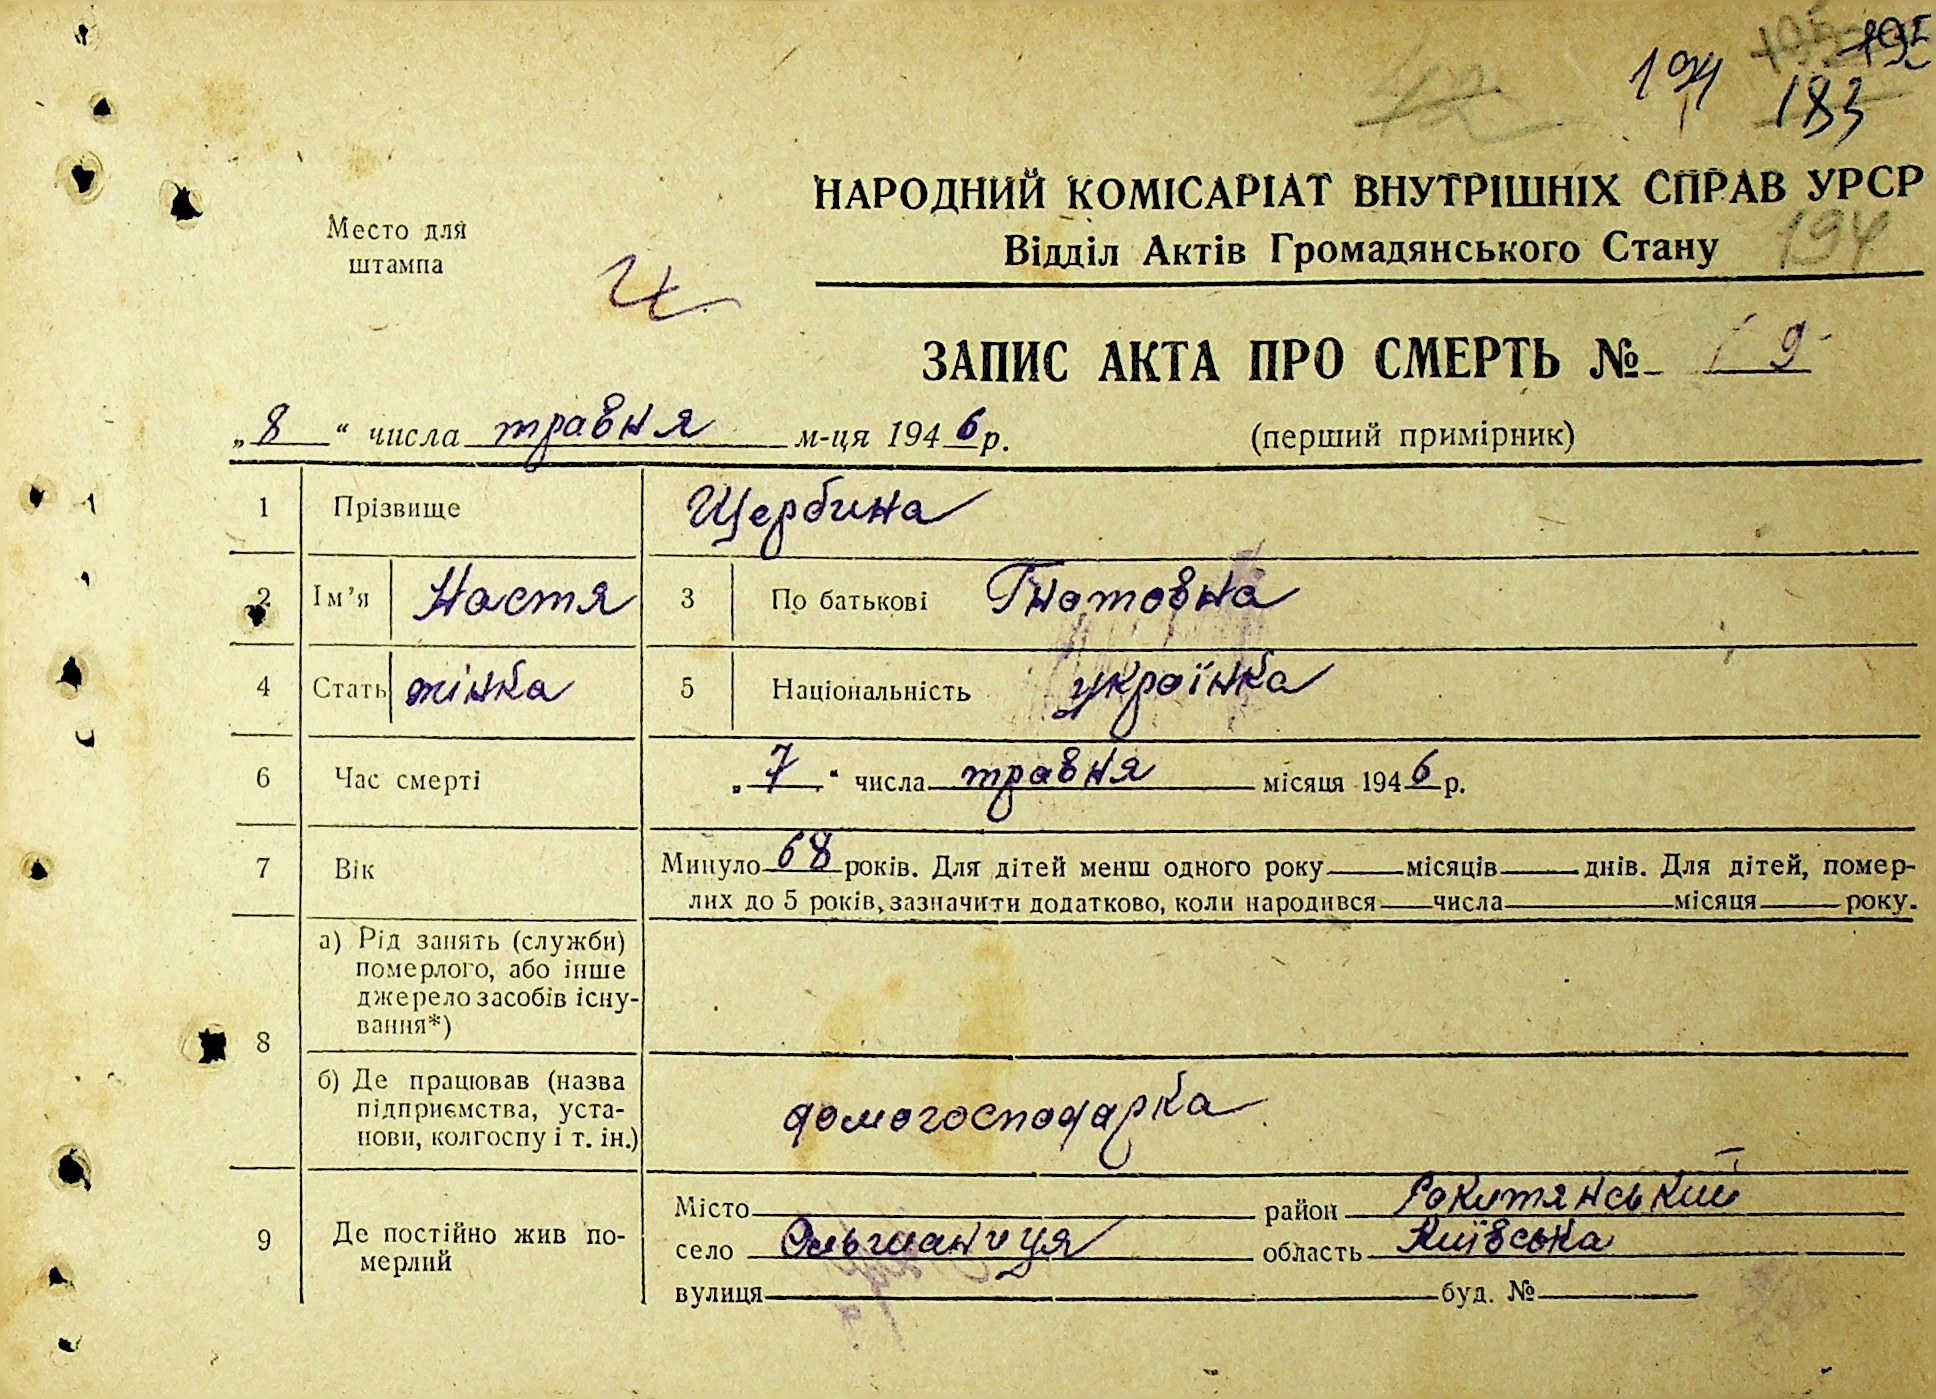 42 194 195 195
183
НАРОДНИЙ КОМІСАРІАТ ВНУТРІШНІХ СПРАВ УРСР
Место для штампа
Відділ Актів Громадянського Стану 194
ЗАПИС АКТА ПРО СМЕРТЬ № 19
„8“ числа травня м-ця 1946 р. (перший примірник)
1 Прізвище Щербина
2 Ім’я Настя 3 По батькові Гнатовна
4 Стать жінка 5 Національність українка
6 Час смерті „7“ числа травня місяця 1946 р.
7 Вік Минуло 68 років. Для дітей менш одного року місяців днів. Для дітей, помер-
лих до 5 років, зазначити додатково, коли народився числа місяця року.
8 а) Рід занять (служби)
померлого, або інше
джерело засобів існу-
вання*)
б) Де працював (назва
підприємства, уста-
нови, колгоспу і т. ін.)
домогосподарка
9 Де постійно жив по-
мерлий
Місто район Рокитянський
село Ольшаниця область Київська
вулиця буд. №